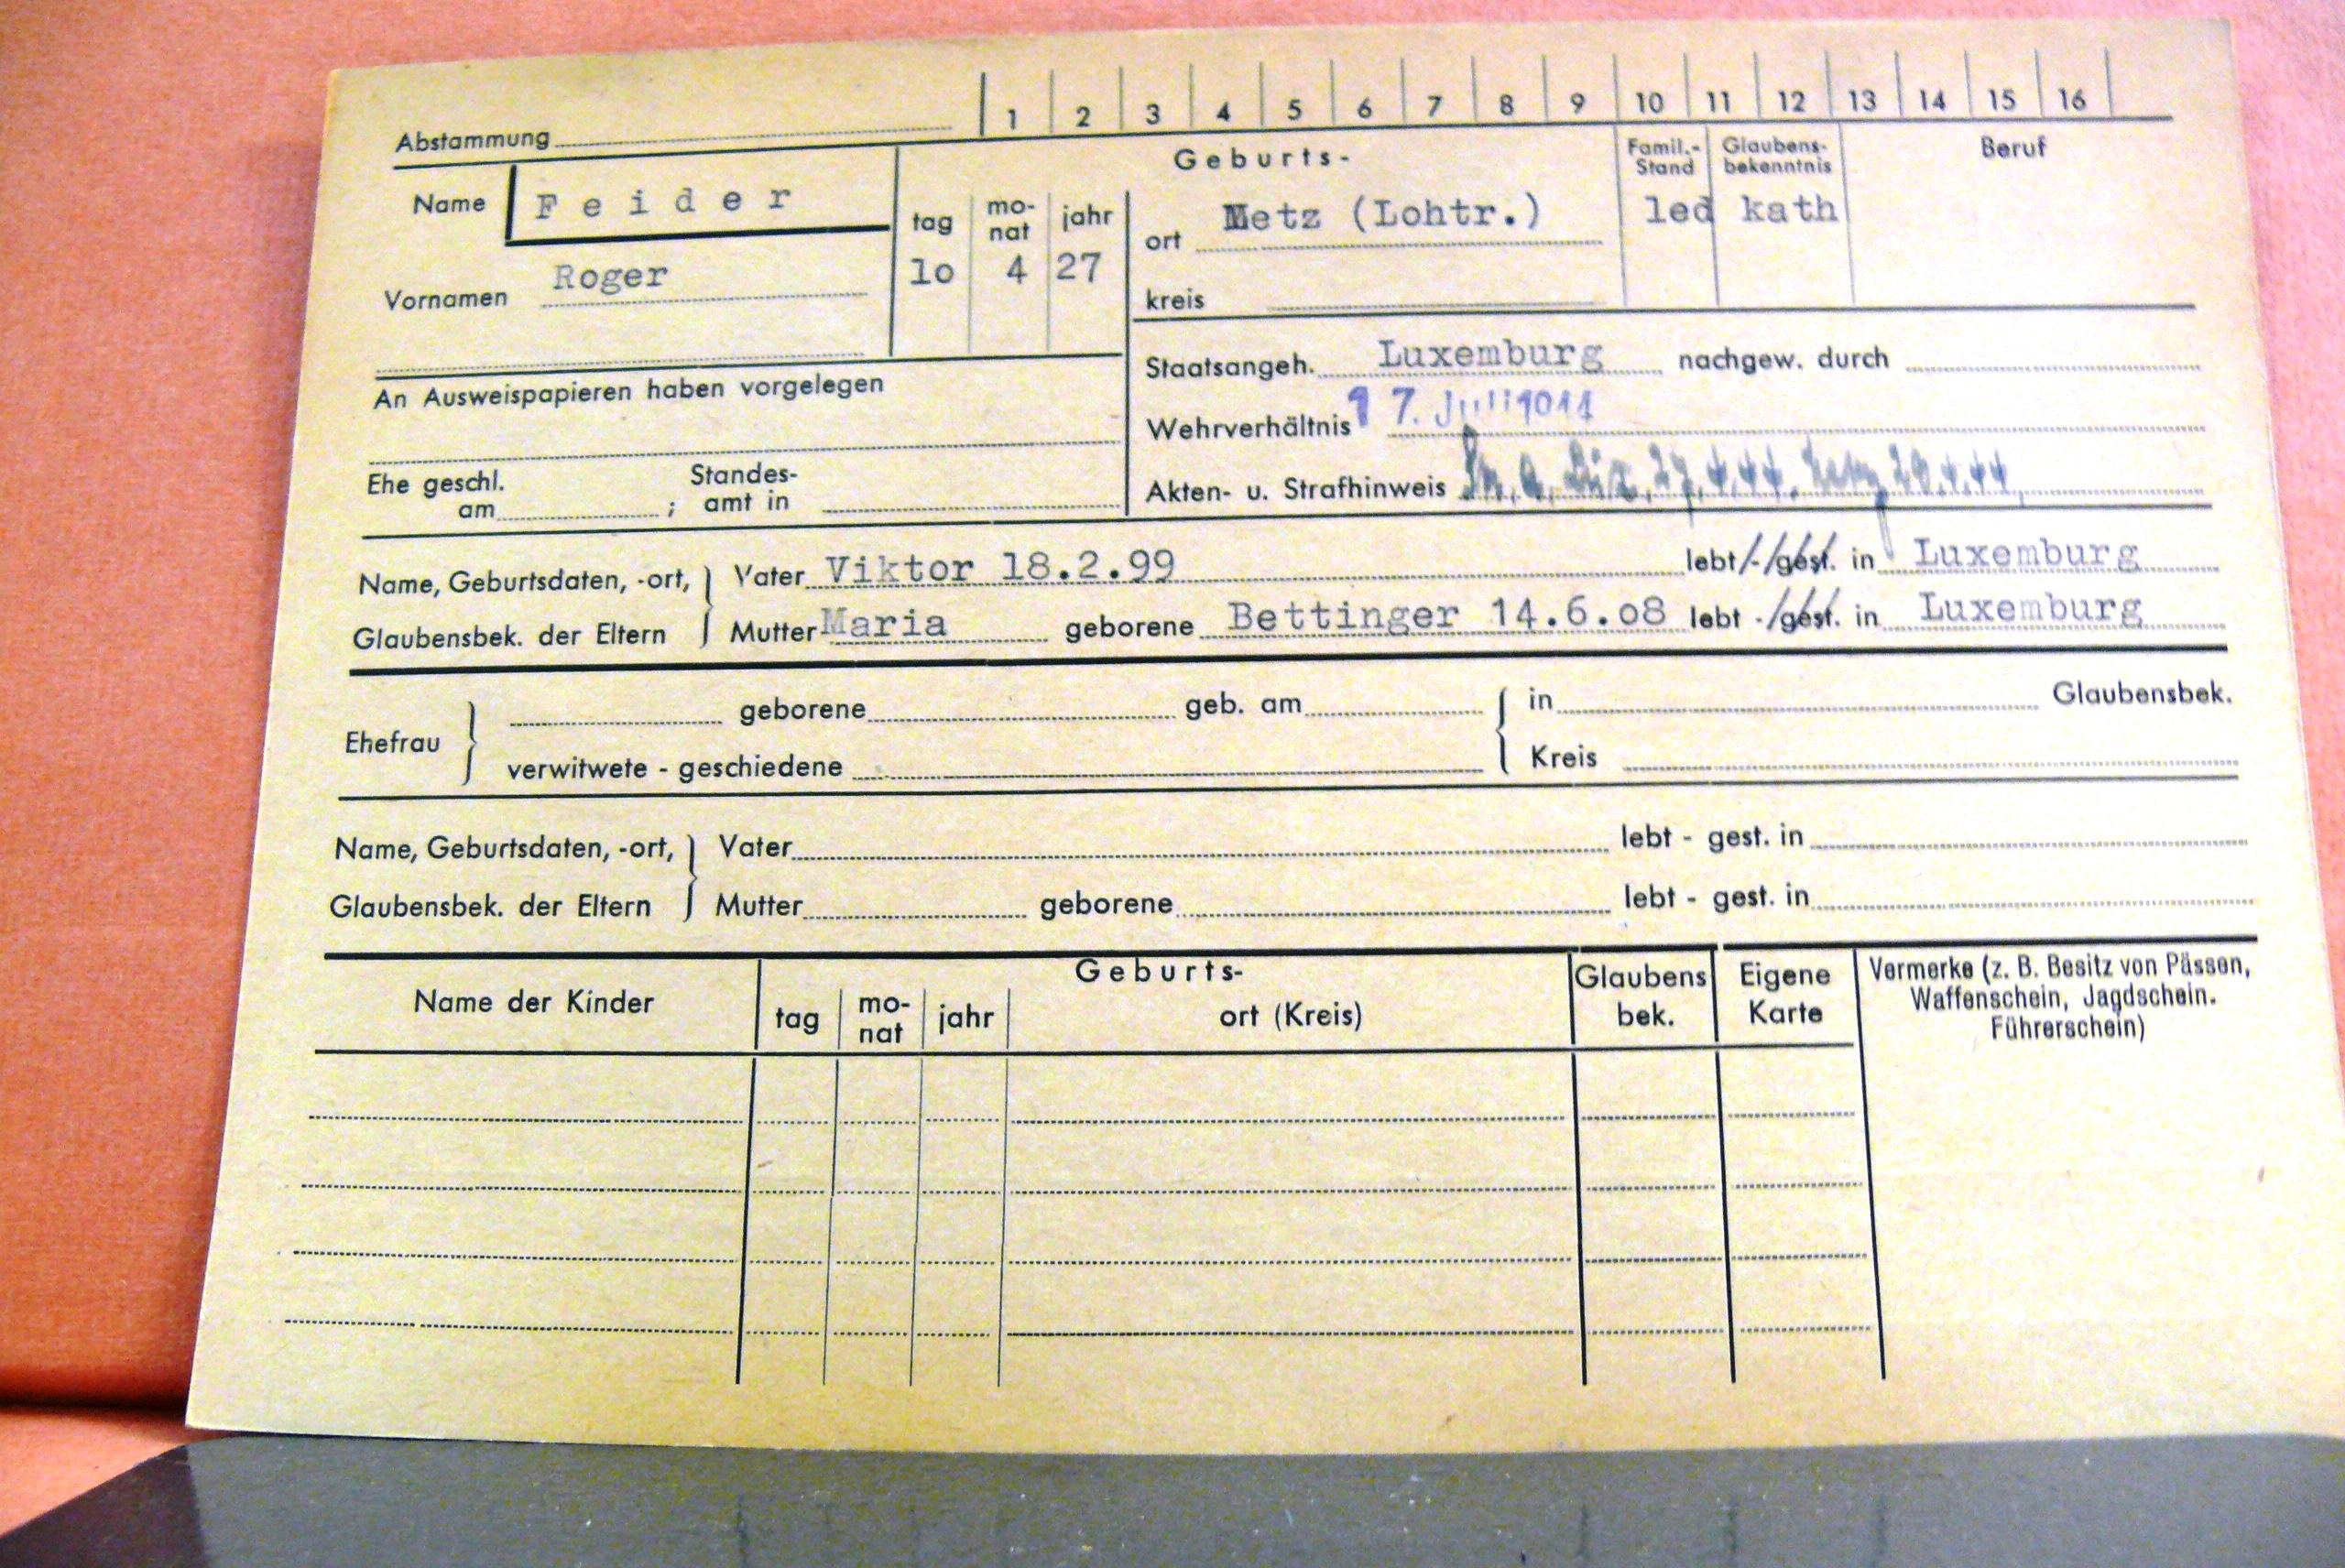 1 2 3 4 5 6 7 8 9 10 11 12 13 14 15 16
Abstammung
Geburts- Famil.-Stand Glaubens-bekenntnis Beruf
Name Feider
tag mo-nat jahr ort Metz (Lohtr.) led kath
Vornamen Roger 10 4 27
kreis
Staatsangeh. Luxemburg nachgew. durch
An Ausweispapieren haben vorgelegen
Wehrverhältnis 17. Juli
Ehe geschl. am ; Standes-amt in
Akten- u. Strafhinweis
Name, Geburtsdaten, -ort, Vater Viktor 18.2.99 lebt - gest. in Luxemburg
Glaubensbek. der Eltern Mutter Maria geborene Bettinger 14.6.08 lebt - gest. in Luxemburg
Ehefrau geborene geb. am in Glaubensbek.
verwitwete - geschiedene Kreis
Name, Geburtsdaten, -ort, Vater lebt - gest. in
Glaubensbek. der Eltern Mutter geborene lebt - gest. in
Name der Kinder Geburts- Glaubens bek. Eigene Karte Vermerke (z. B. Besitz von Pässen,
tag mo-nat jahr ort (Kreis) Waffenschein, Jagdschein.
Führerschein)